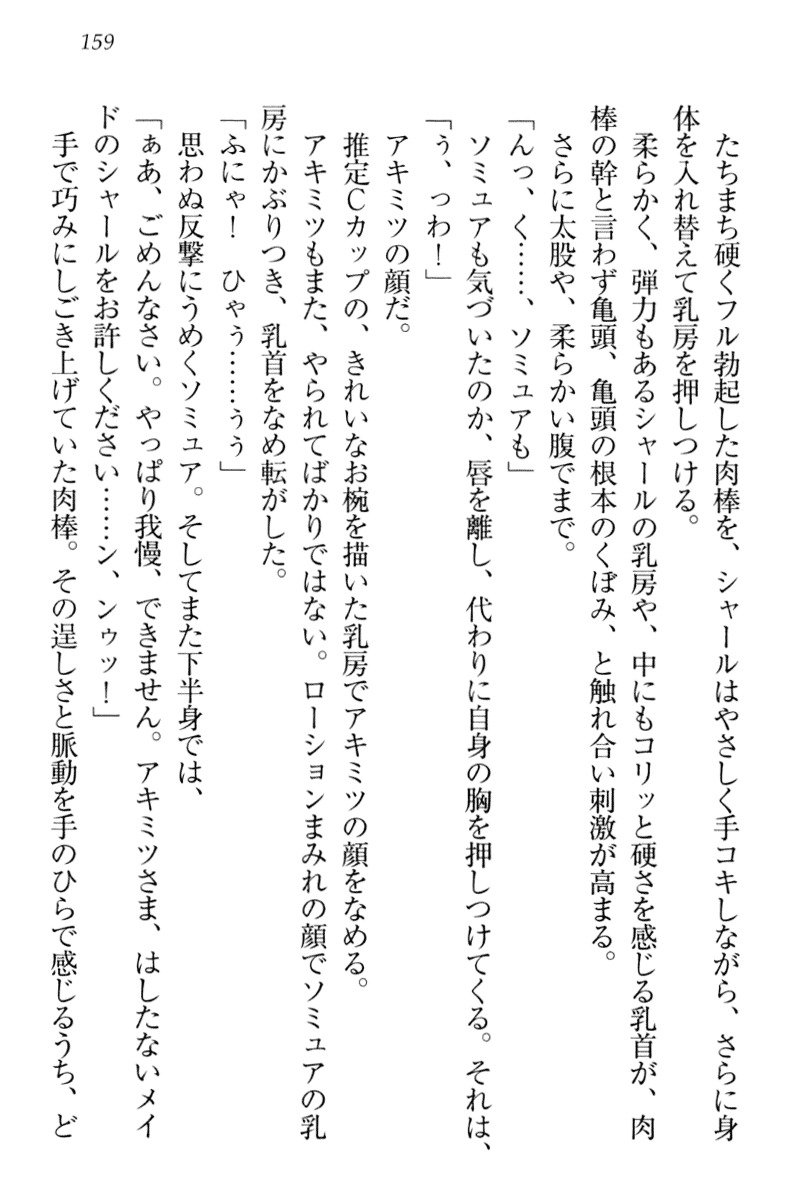 159
たちまち硬くフル勃起した肉棒を、シャールはやさしく手コキしながら、さらに身
体を入れ替えて乳房を押しつける。
柔らかく、弾力もあるシャールの乳房や、中にもコリッと硬さを感じる乳首が、肉
棒の幹と言わず亀頭、亀頭の根本のくぼみ、と触れ合い刺激が高まる。
さらに太股や、柔らかい腹でまで。
「んっ、く……、ソミュアも」
ソミュアも気づいたのか、唇を離し、代わりに自身の胸を押しつけてくる。それは、
「ぅ、っわ！」
アキミツの顔だ。
推定Ｃカップの、きれいなお椀を描いた乳房でアキミツの顔をなめる。
アキミツもまた、やられてばかりではない。ローションまみれの顔でソミュアの乳
房にかぶりつき、乳首をなめ転がした。
「ふにゃ！　ひゃぅ……うぅ」
思わぬ反撃にうめくソミュア。そしてまた下半身では、
「ぁあ、ごめんなさい。やっぱり我慢、できません。アキミツさま、はしたないメイ
ドのシャールをお許しください……ン、ンゥッ！」
手で巧みにしごき上げていた肉棒。その逞しさと脈動を手のひらで感じるうち、ど